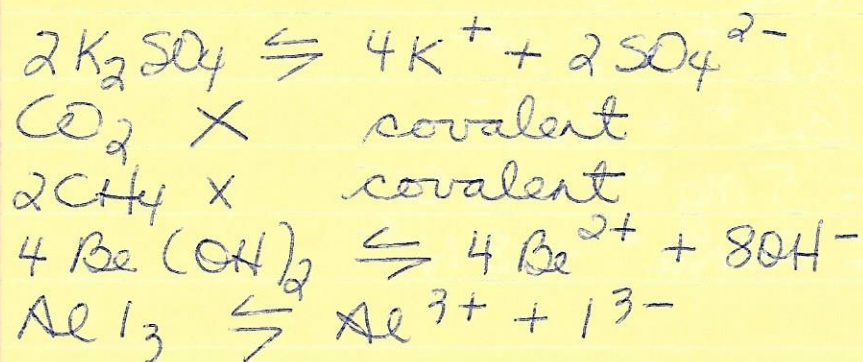 2K₂SO₄ ⇆ 4K⁺ + 2SO₄²⁻
CO₂ X covalent
2CH₄ X covalent
4 Be(OH)₂ ⇆ 4 Be²⁺ + 8OH⁻
AlI₃ ⇆ Al³⁺ + I³⁻